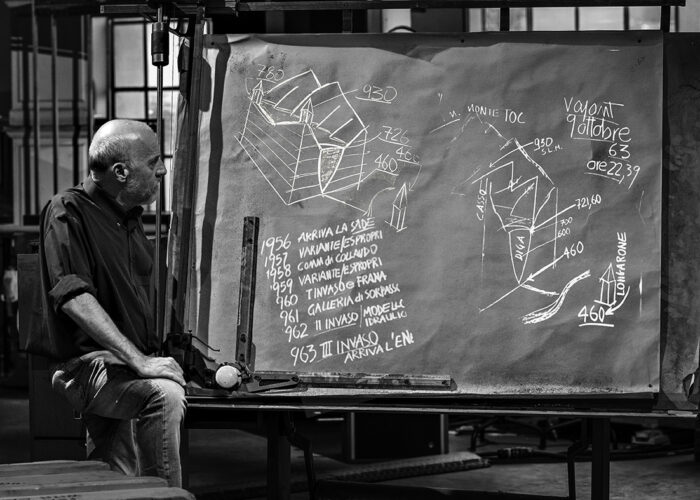 780
930
726
460
460
1956 ARRIVA LA SADE
1957 VARIANTE/ESPROPRI
1958 COMM. DI COLLAUDO
1959 VARIANTE/ESPROPRI
1960 I INVASO e FRANA
1961 GALLERIA DI SORPASS
1962 II INVASO / MODELLO
IDRAULIC
1963 III INVASO
ARRIVA L'EN
M. MONTE TOC
930
S.L.M.
CASSO
DIGA
721,60
700
600
460
LONGARONE
460
Vajont
9 ottobre
63
ore 22,39